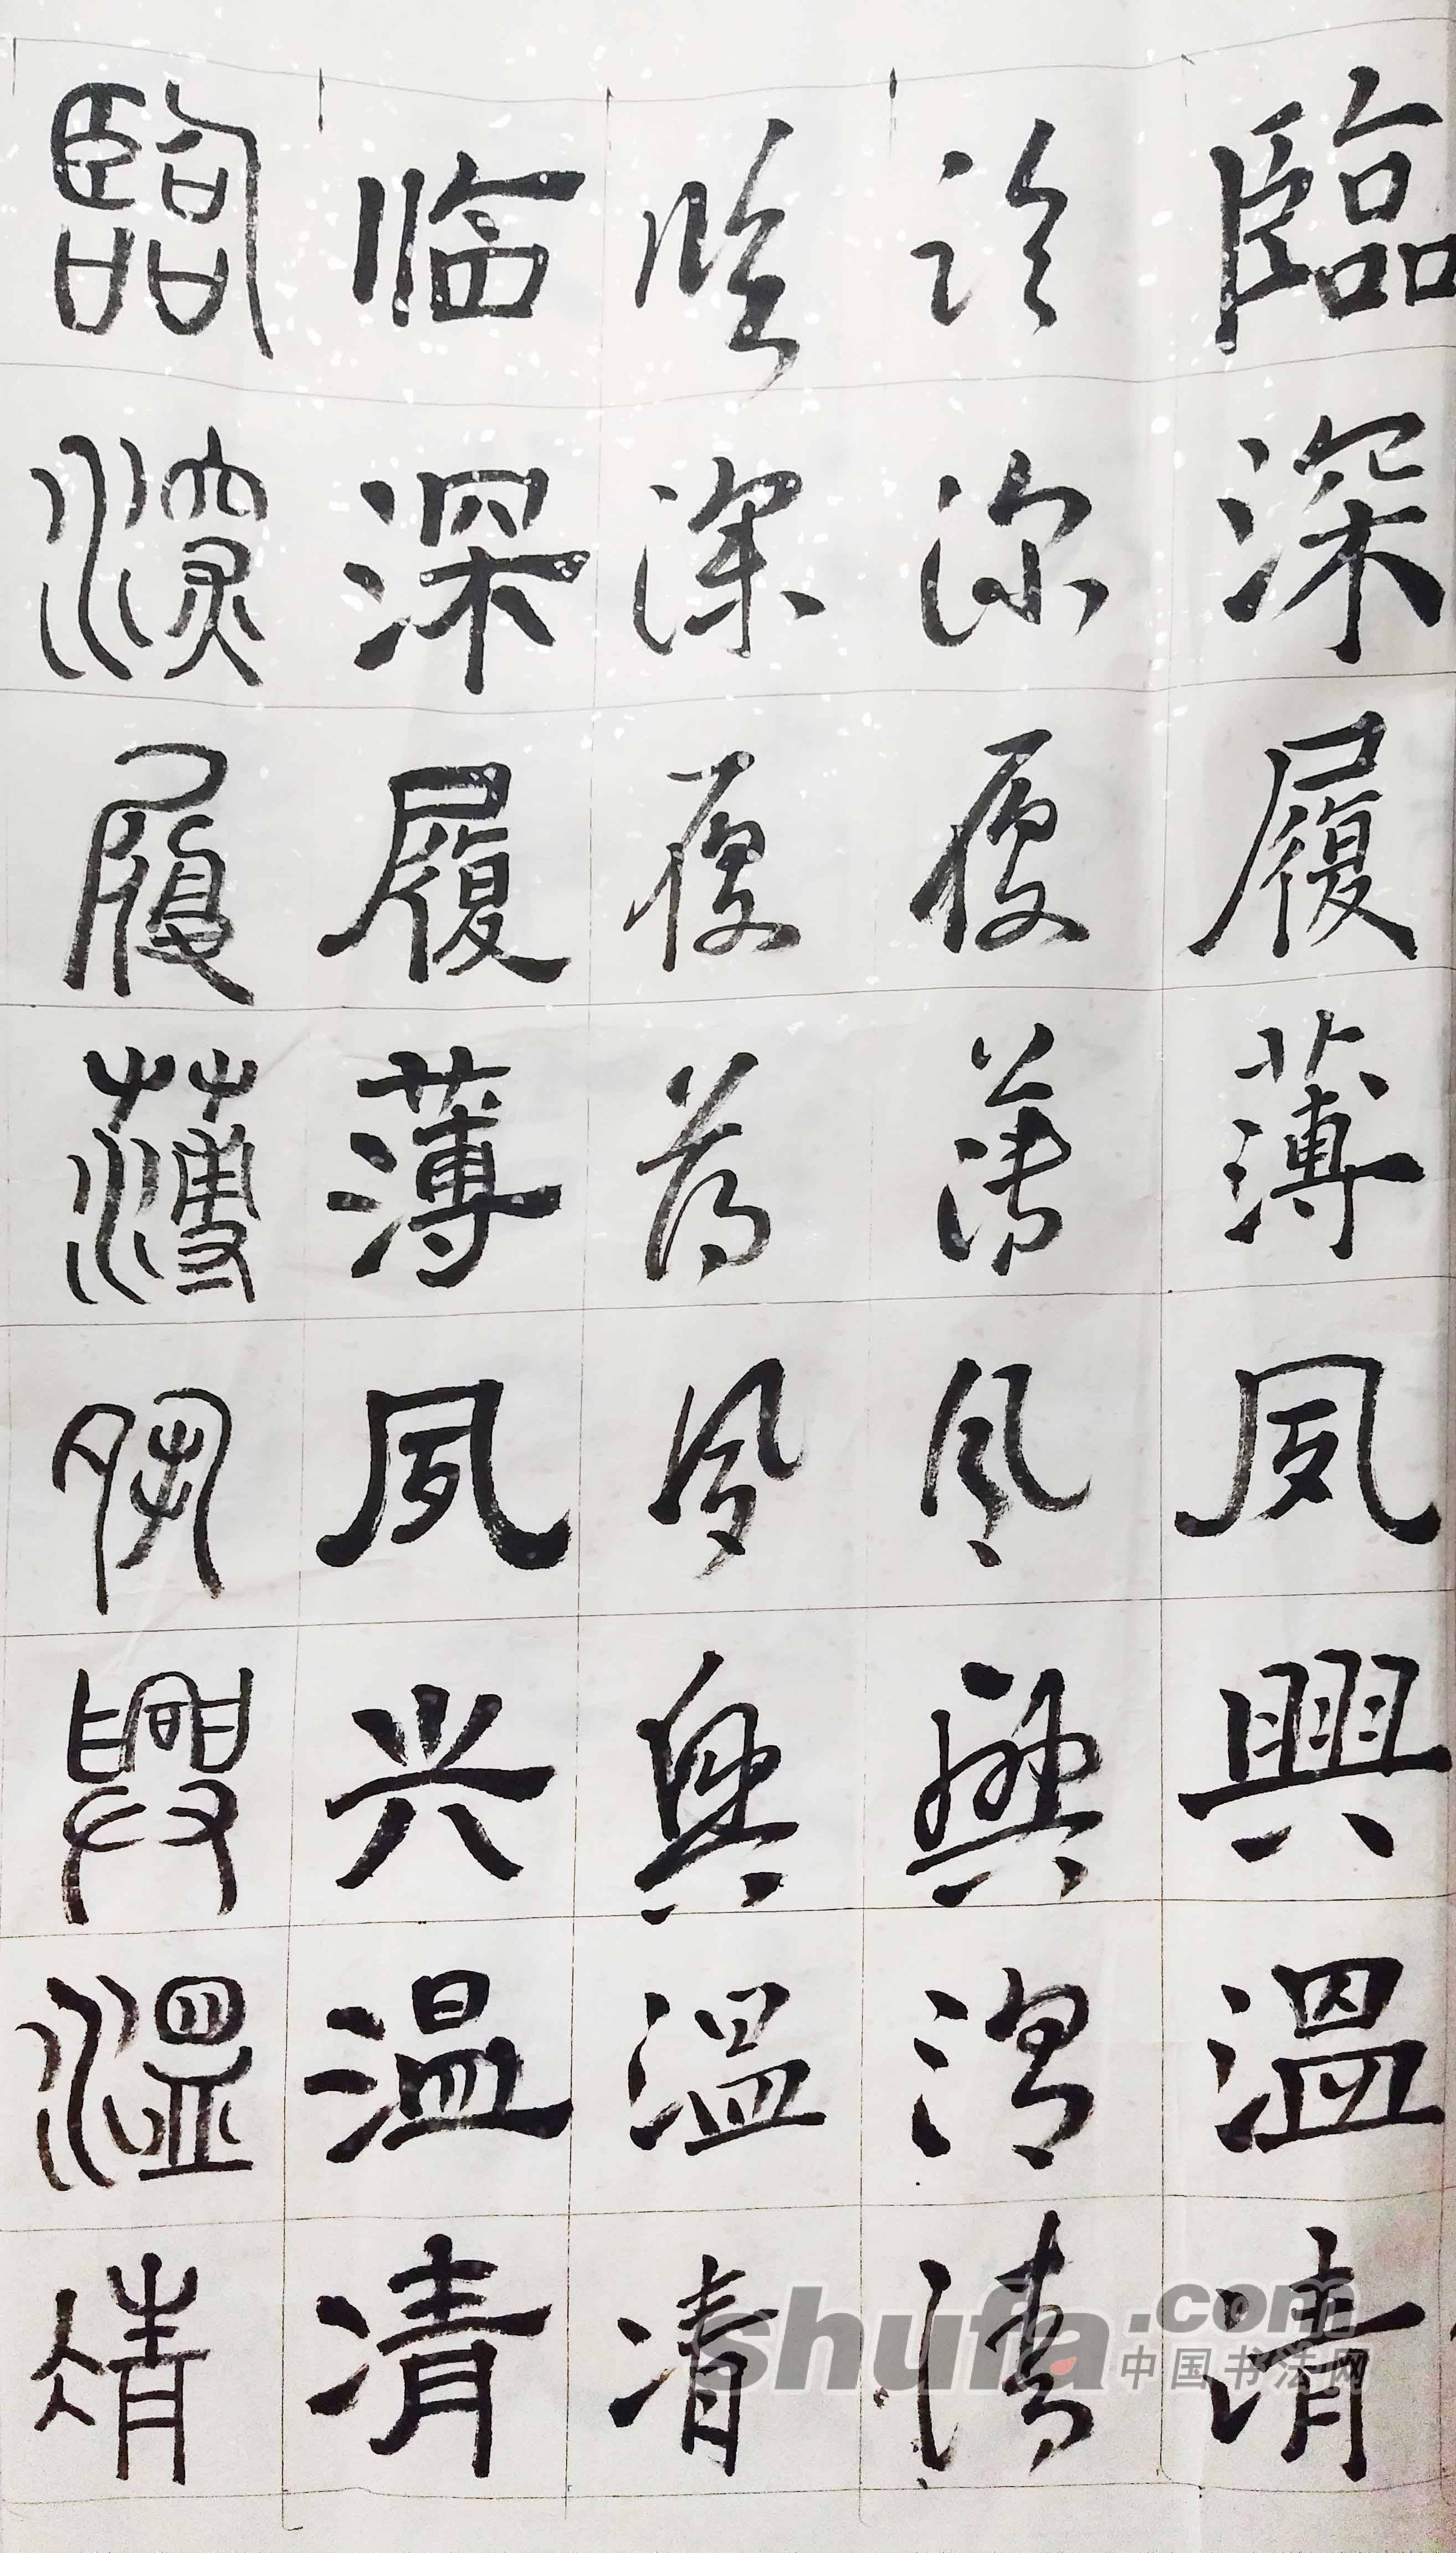 臨深履薄夙興溫清
臨深履薄夙興溫清
臨深履薄夙興溫凊
临深履薄夙兴温凊
臨深履薄夙興溫凊
shufa.com
中国书法网